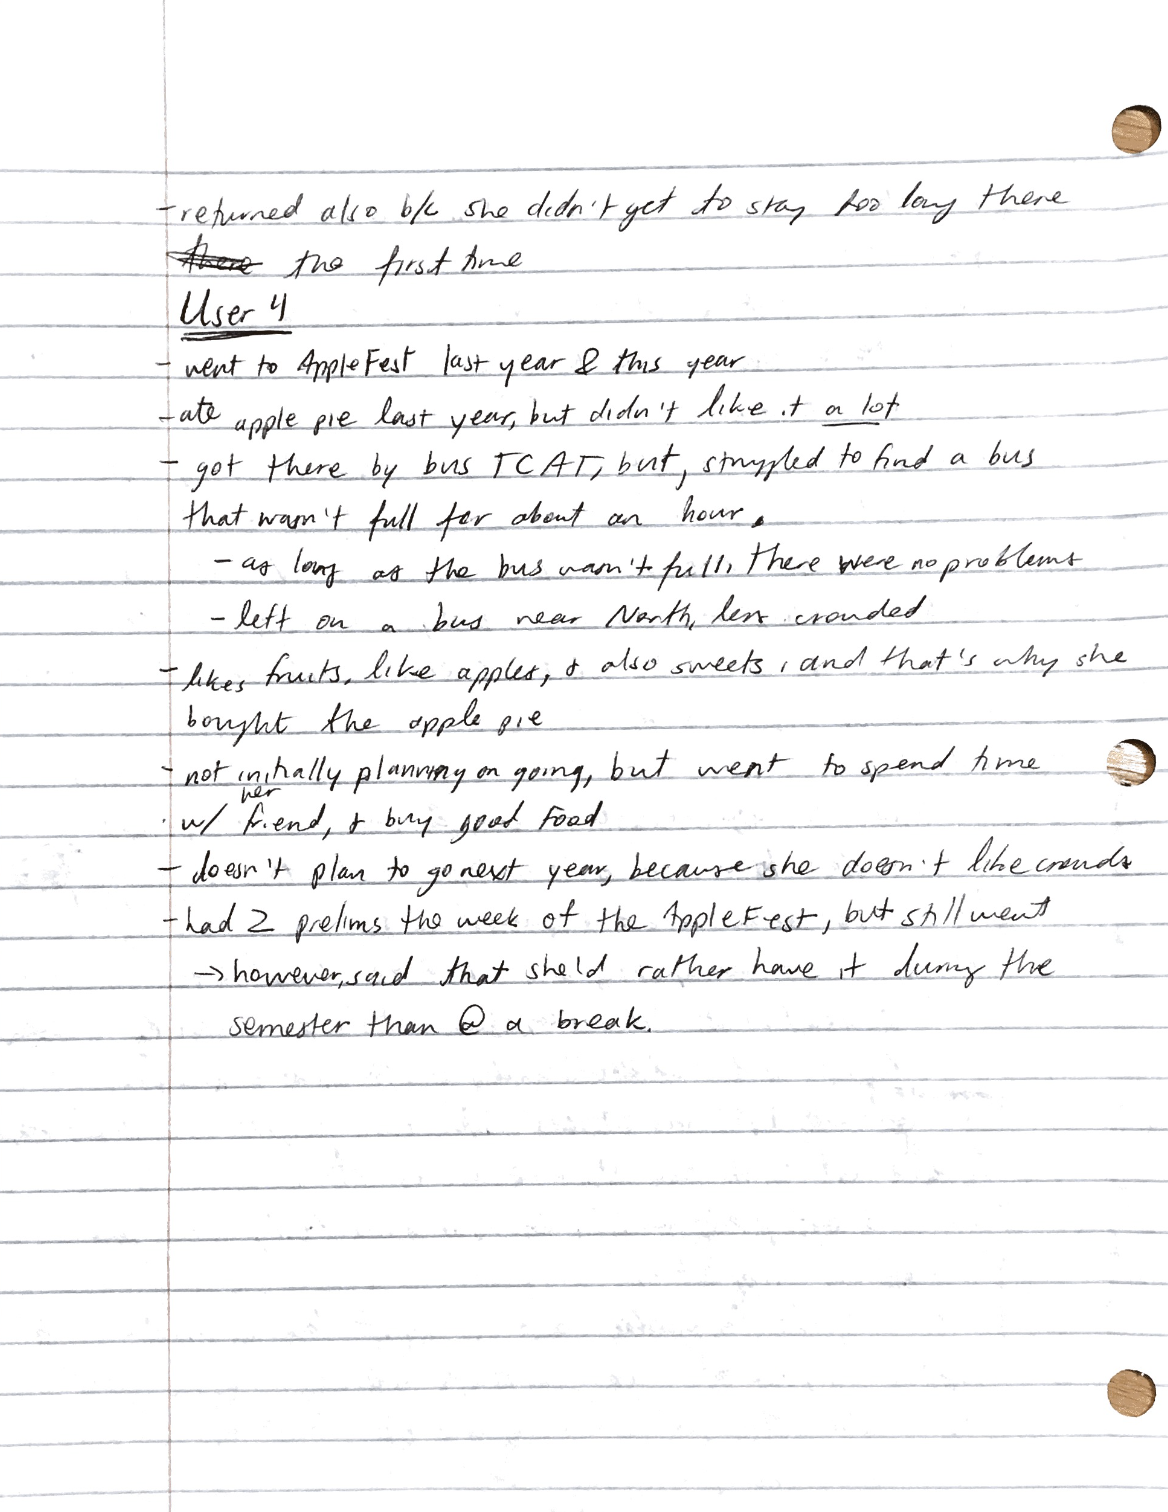 - returned also b/c she didn't get to stay too long there
there the first time
User 4
- went to AppleFest last year & this year
- ate apple pie last year, but didn't like it a lot
- got there by bus TCAT, but, struggled to find a bus
that wasn't full for about an hour.
- as long as the bus wasn't full, there were no problems
- left on a bus near North, less crowded
- likes fruits, like apples, & also sweets, and that's why she
bought the apple pie
- not initially planning on going, but went to spend time
w/ her friend, & buy good food
- doesn't plan to go next year, because she doesn't like crowds
- had 2 prelims the week of the AppleFest, but still went
→ however, said that she'd rather have it during the
semester than @ a break.